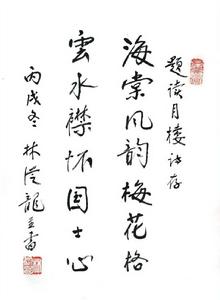 题读月楼诗存
海棠风韵梅花格
雲水襟怀国士心
丙戌冬 林从龙并書